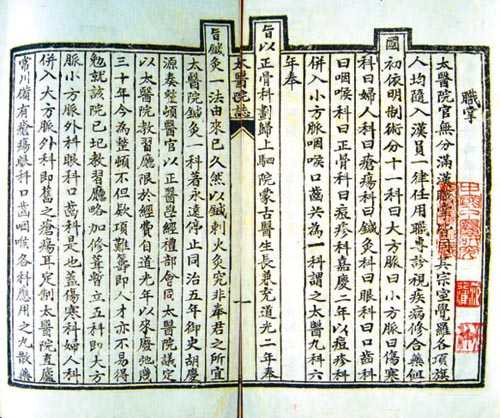 職掌
太醫院官無分滿漢職掌皆同其宗室覺羅各項旗
人均隨入漢員一律任用職專診視疾病修合藥餌
國初依明制術分十一科曰大方脈曰小方脈曰傷寒
科曰婦人科曰瘡瘍科曰鍼灸科曰眼科曰口齒科
曰咽喉科曰正骨科曰痘疹科嘉慶二年以痘疹科
併入小方脈咽喉口齒共為一科謂之太醫九科六
年奉
旨以正骨科劃歸上駟院蒙古醫生長兼充道光二年奉
太醫院誌
一
旨鍼灸一法由來已久然以鍼刺火灸究非奉君之所宜
太醫院鍼灸一科著永遠停止同治五年御史胡慶
源奏整頓醫官以正醫學經禮部會同太醫院議定
以太醫院教習廳限於經費自道光年以來廢弛幾
三十年今為整頓不但欵項難籌即人才亦不易得
勉就該院已圯教習廳略加修葺暫立五科即大方
脈小方脈外科眼科口齒科是也蓋傷寒科婦人科
併入大方脈外科即舊之瘡瘍耳定制太醫院直廬
常川備有瘡瘍眼科口齒咽喉各科應用之丸散藥